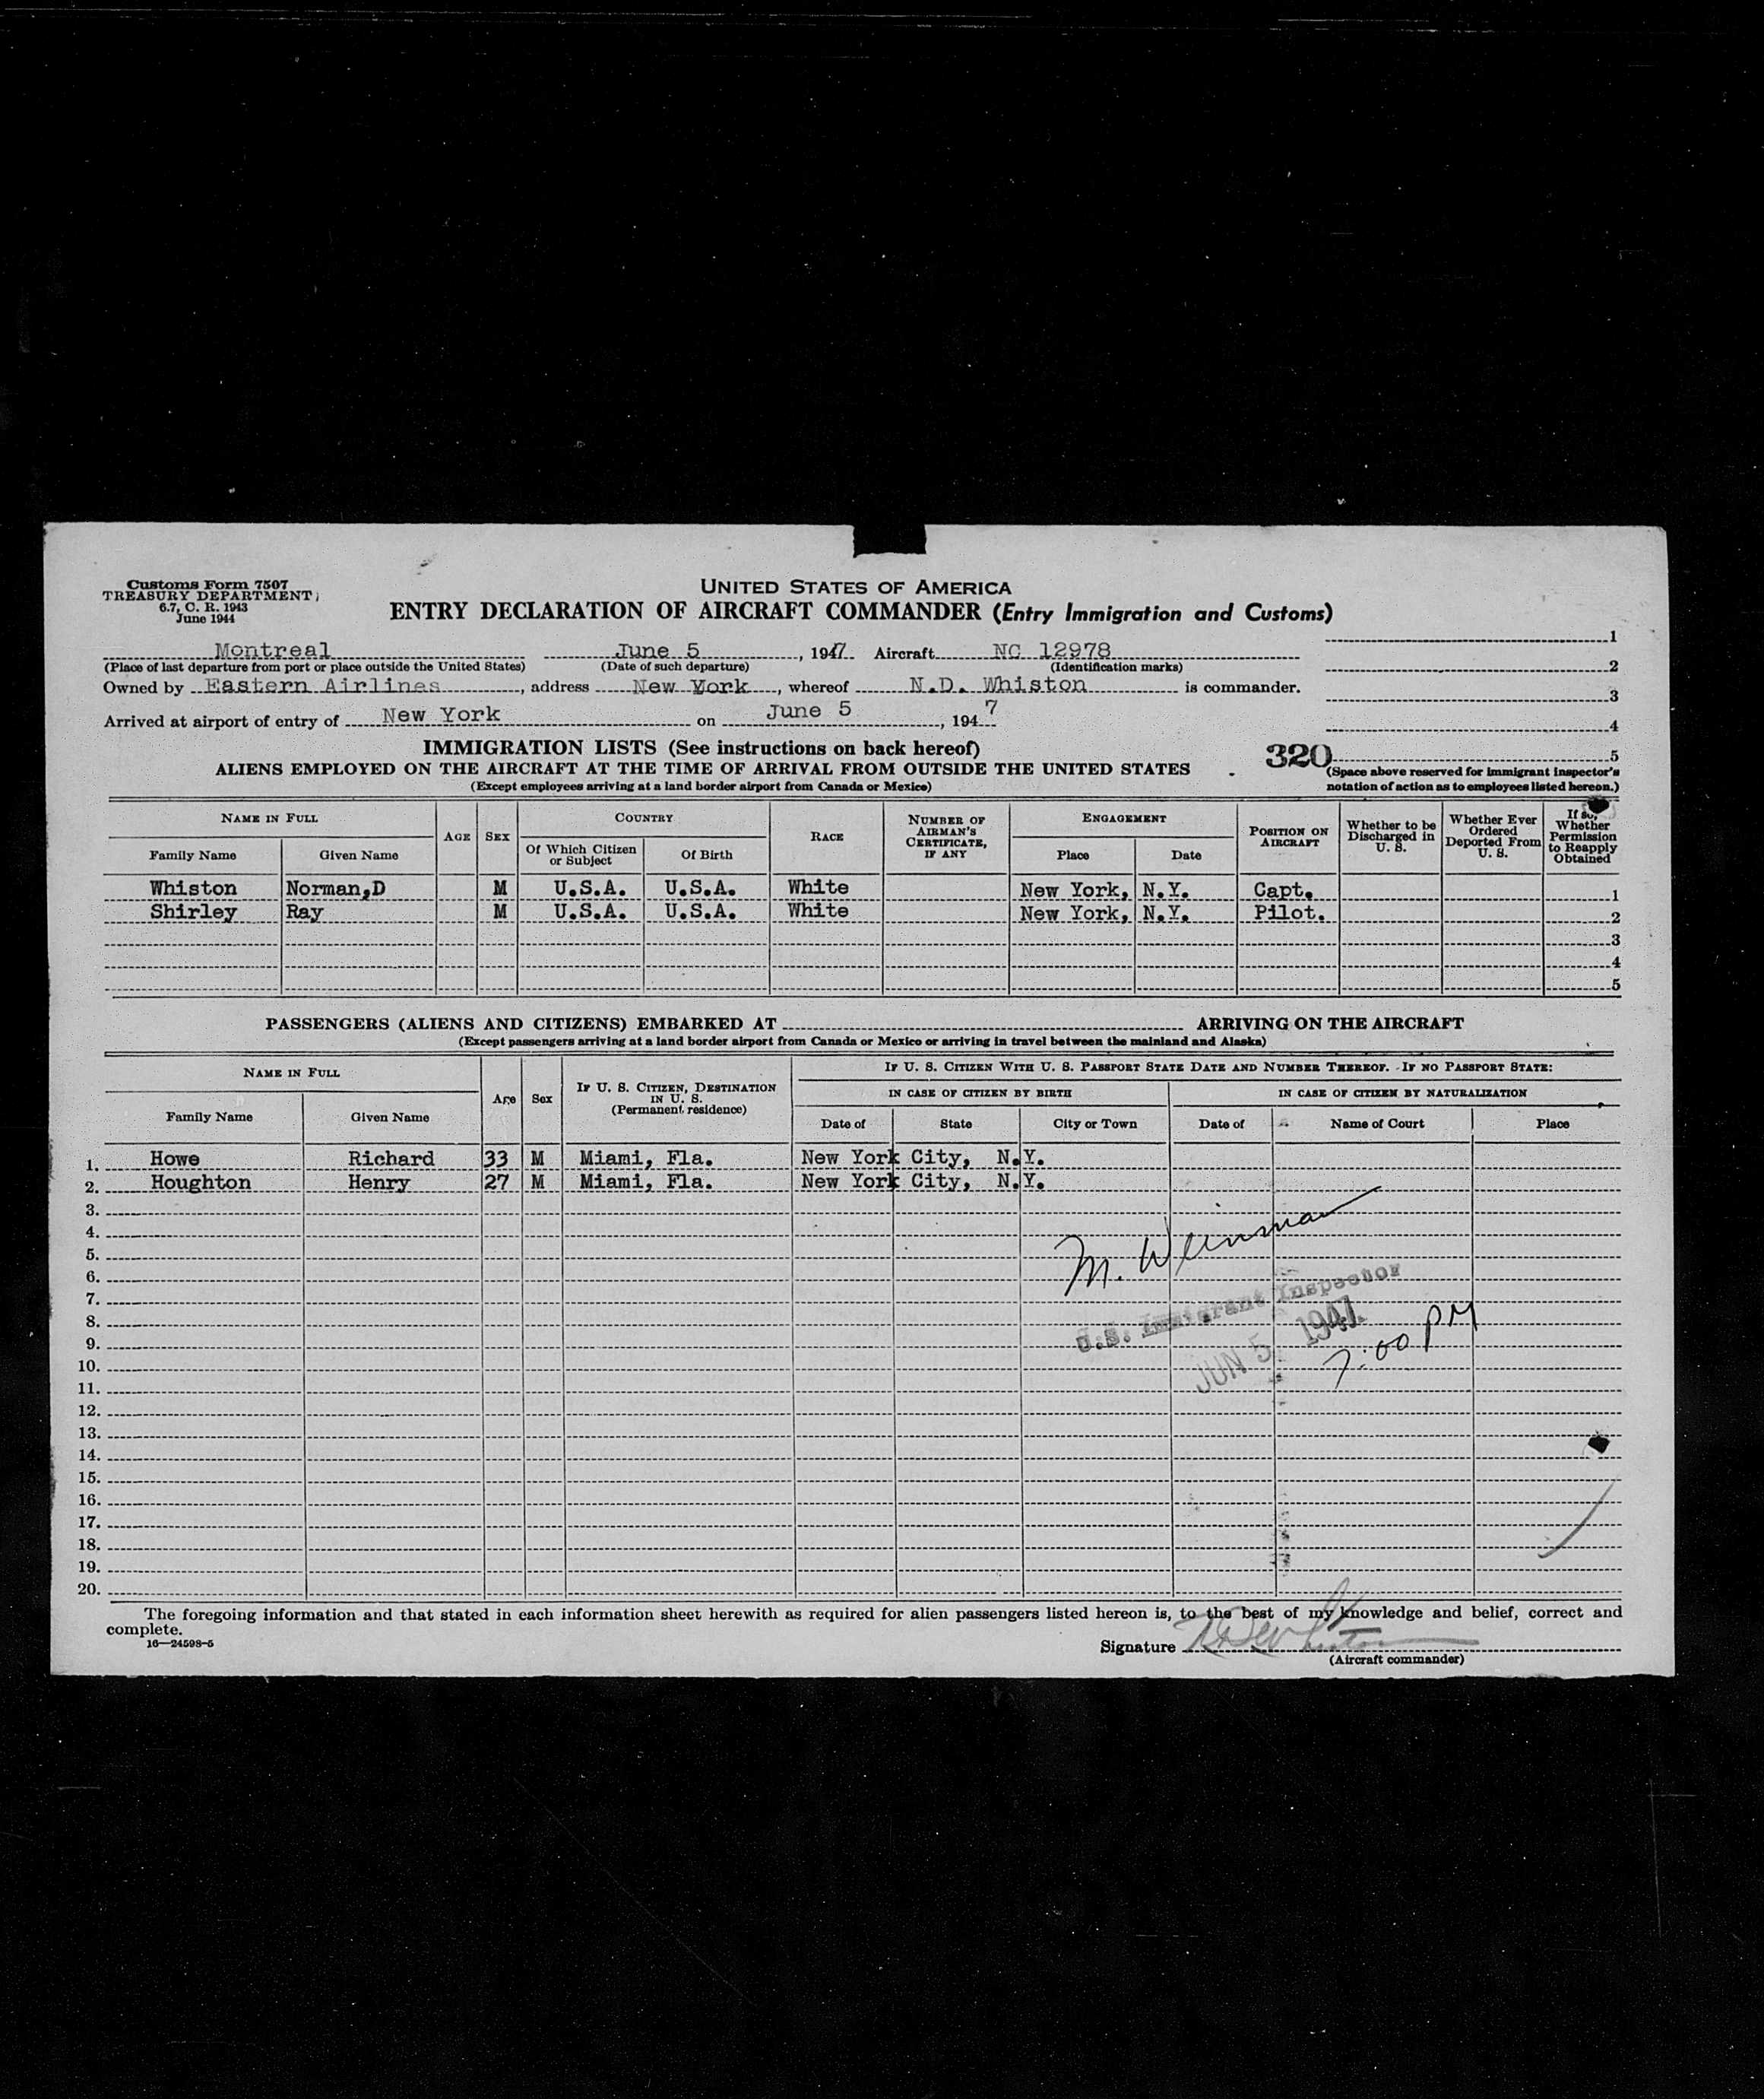 Customs Form 7507
TREASURY DEPARTMENT
6.7, C. R. 1943
June 1944
UNITED STATES OF AMERICA
ENTRY DECLARATION OF AIRCRAFT COMMANDER (Entry Immigration and Customs)
Montreal June 5, 1947 Aircraft NC 12978
(Place of last departure from port or place outside the United States) (Date of such departure) (Identification marks)
Owned by Eastern Airlines, address New York, whereof N.D. Whiston is commander.
Arrived at airport of entry of New York on June 5, 1947
1
2
3
4
320 5
(Space above reserved for immigrant inspector's
notation of action as to employees listed hereon.)
IMMIGRATION LISTS (See instructions on back hereof)
ALIENS EMPLOYED ON THE AIRCRAFT AT THE TIME OF ARRIVAL FROM OUTSIDE THE UNITED STATES
(Except employees arriving at a land border airport from Canada or Mexico)
NAME IN FULL
Family Name Given Name
AGE
SEX
COUNTRY
Of Which Citizen or Subject Of Birth
RACE
NUMBER OF AIRMAN'S CERTIFICATE, IF ANY
ENGAGEMENT
Place Date
POSITION ON AIRCRAFT
Whether to be Discharged in U. S.
Whether Ever Ordered Deported From U. S.
If so, Whether Permission to Reapply Obtained
Whiston Norman,D M U.S.A. U.S.A. White New York, N.Y. Capt. 1
Shirley Ray M U.S.A. U.S.A. White New York, N.Y. Pilot. 2
3
4
5
PASSENGERS (ALIENS AND CITIZENS) EMBARKED AT ARRIVING ON THE AIRCRAFT
(Except passengers arriving at a land border airport from Canada or Mexico or arriving in travel between the mainland and Alaska)
NAME IN FULL
Family Name Given Name
Age
Sex
IF U. S. CITIZEN, DESTINATION IN U. S.
(Permanent residence)
IF U. S. CITIZEN WITH U. S. PASSPORT STATE DATE AND NUMBER THEREOF. IF NO PASSPORT STATE:
IN CASE OF CITIZEN BY BIRTH IN CASE OF CITIZEN BY NATURALIZATION
Date of State City or Town Date of Name of Court Place
1. Howe Richard 33 M Miami, Fla. New York City, N.Y.
2. Houghton Henry 27 M Miami, Fla. New York City, N.Y.
3.
4.
5.
6.
7.
8.
9.
10.
11.
12.
13.
14.
15.
16.
17.
18.
19.
20.
M. Weinman
U.S. Immigrant Inspector
JUN 5 1947
7:00 PM
The foregoing information and that stated in each information sheet herewith as required for alien passengers listed hereon is, to the best of my knowledge and belief, correct and
complete.
16—24598-5
Signature N D Whiston
(Aircraft commander)